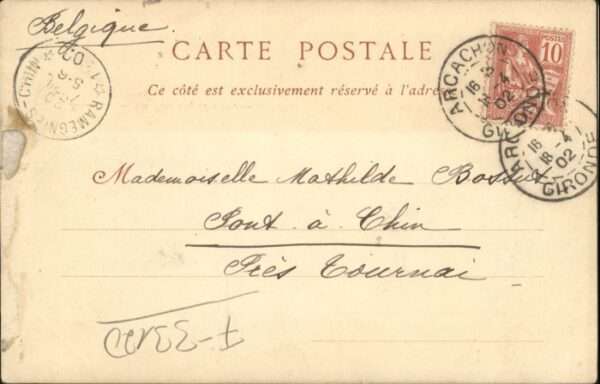 Belgique.
CARTE POSTALE
Ce côté est exclusivement réservé à l'adre
10
POSTES
ARCACHON
16
18-4
02
GIRONDE
ARCACHON
16
18-4
02
GIRONDE
RAMEGNIES-CHIN
Mademoiselle Mathilde Bossut
Pont à Chin
Près Tournai